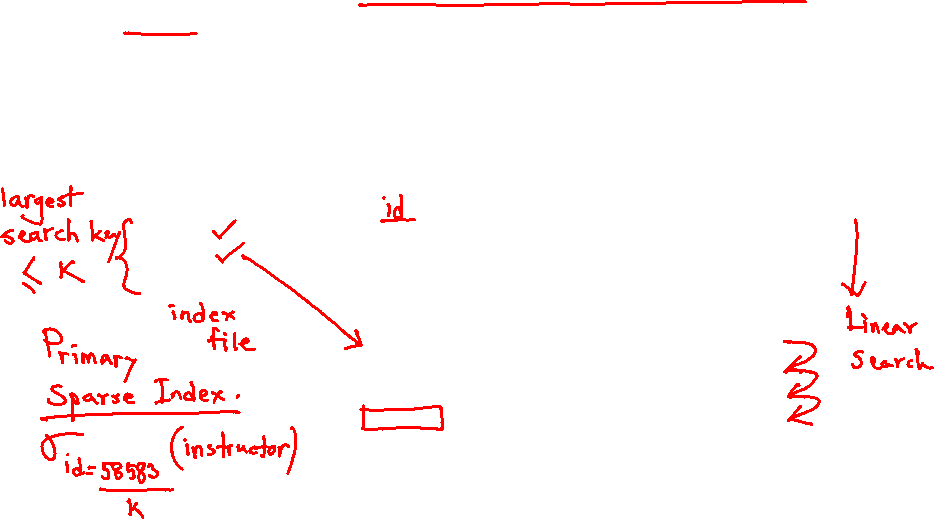 largest
search key
≤ K
id
index
file
Primary
Sparse Index.
σ id=58583 (instructor)
K
Linear
search